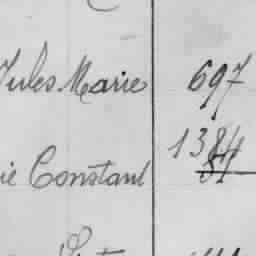 Jules Marie 697
1384
ie Constant 81